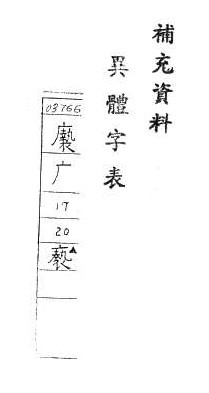 補充資料
異體字表
03766
广
17
20